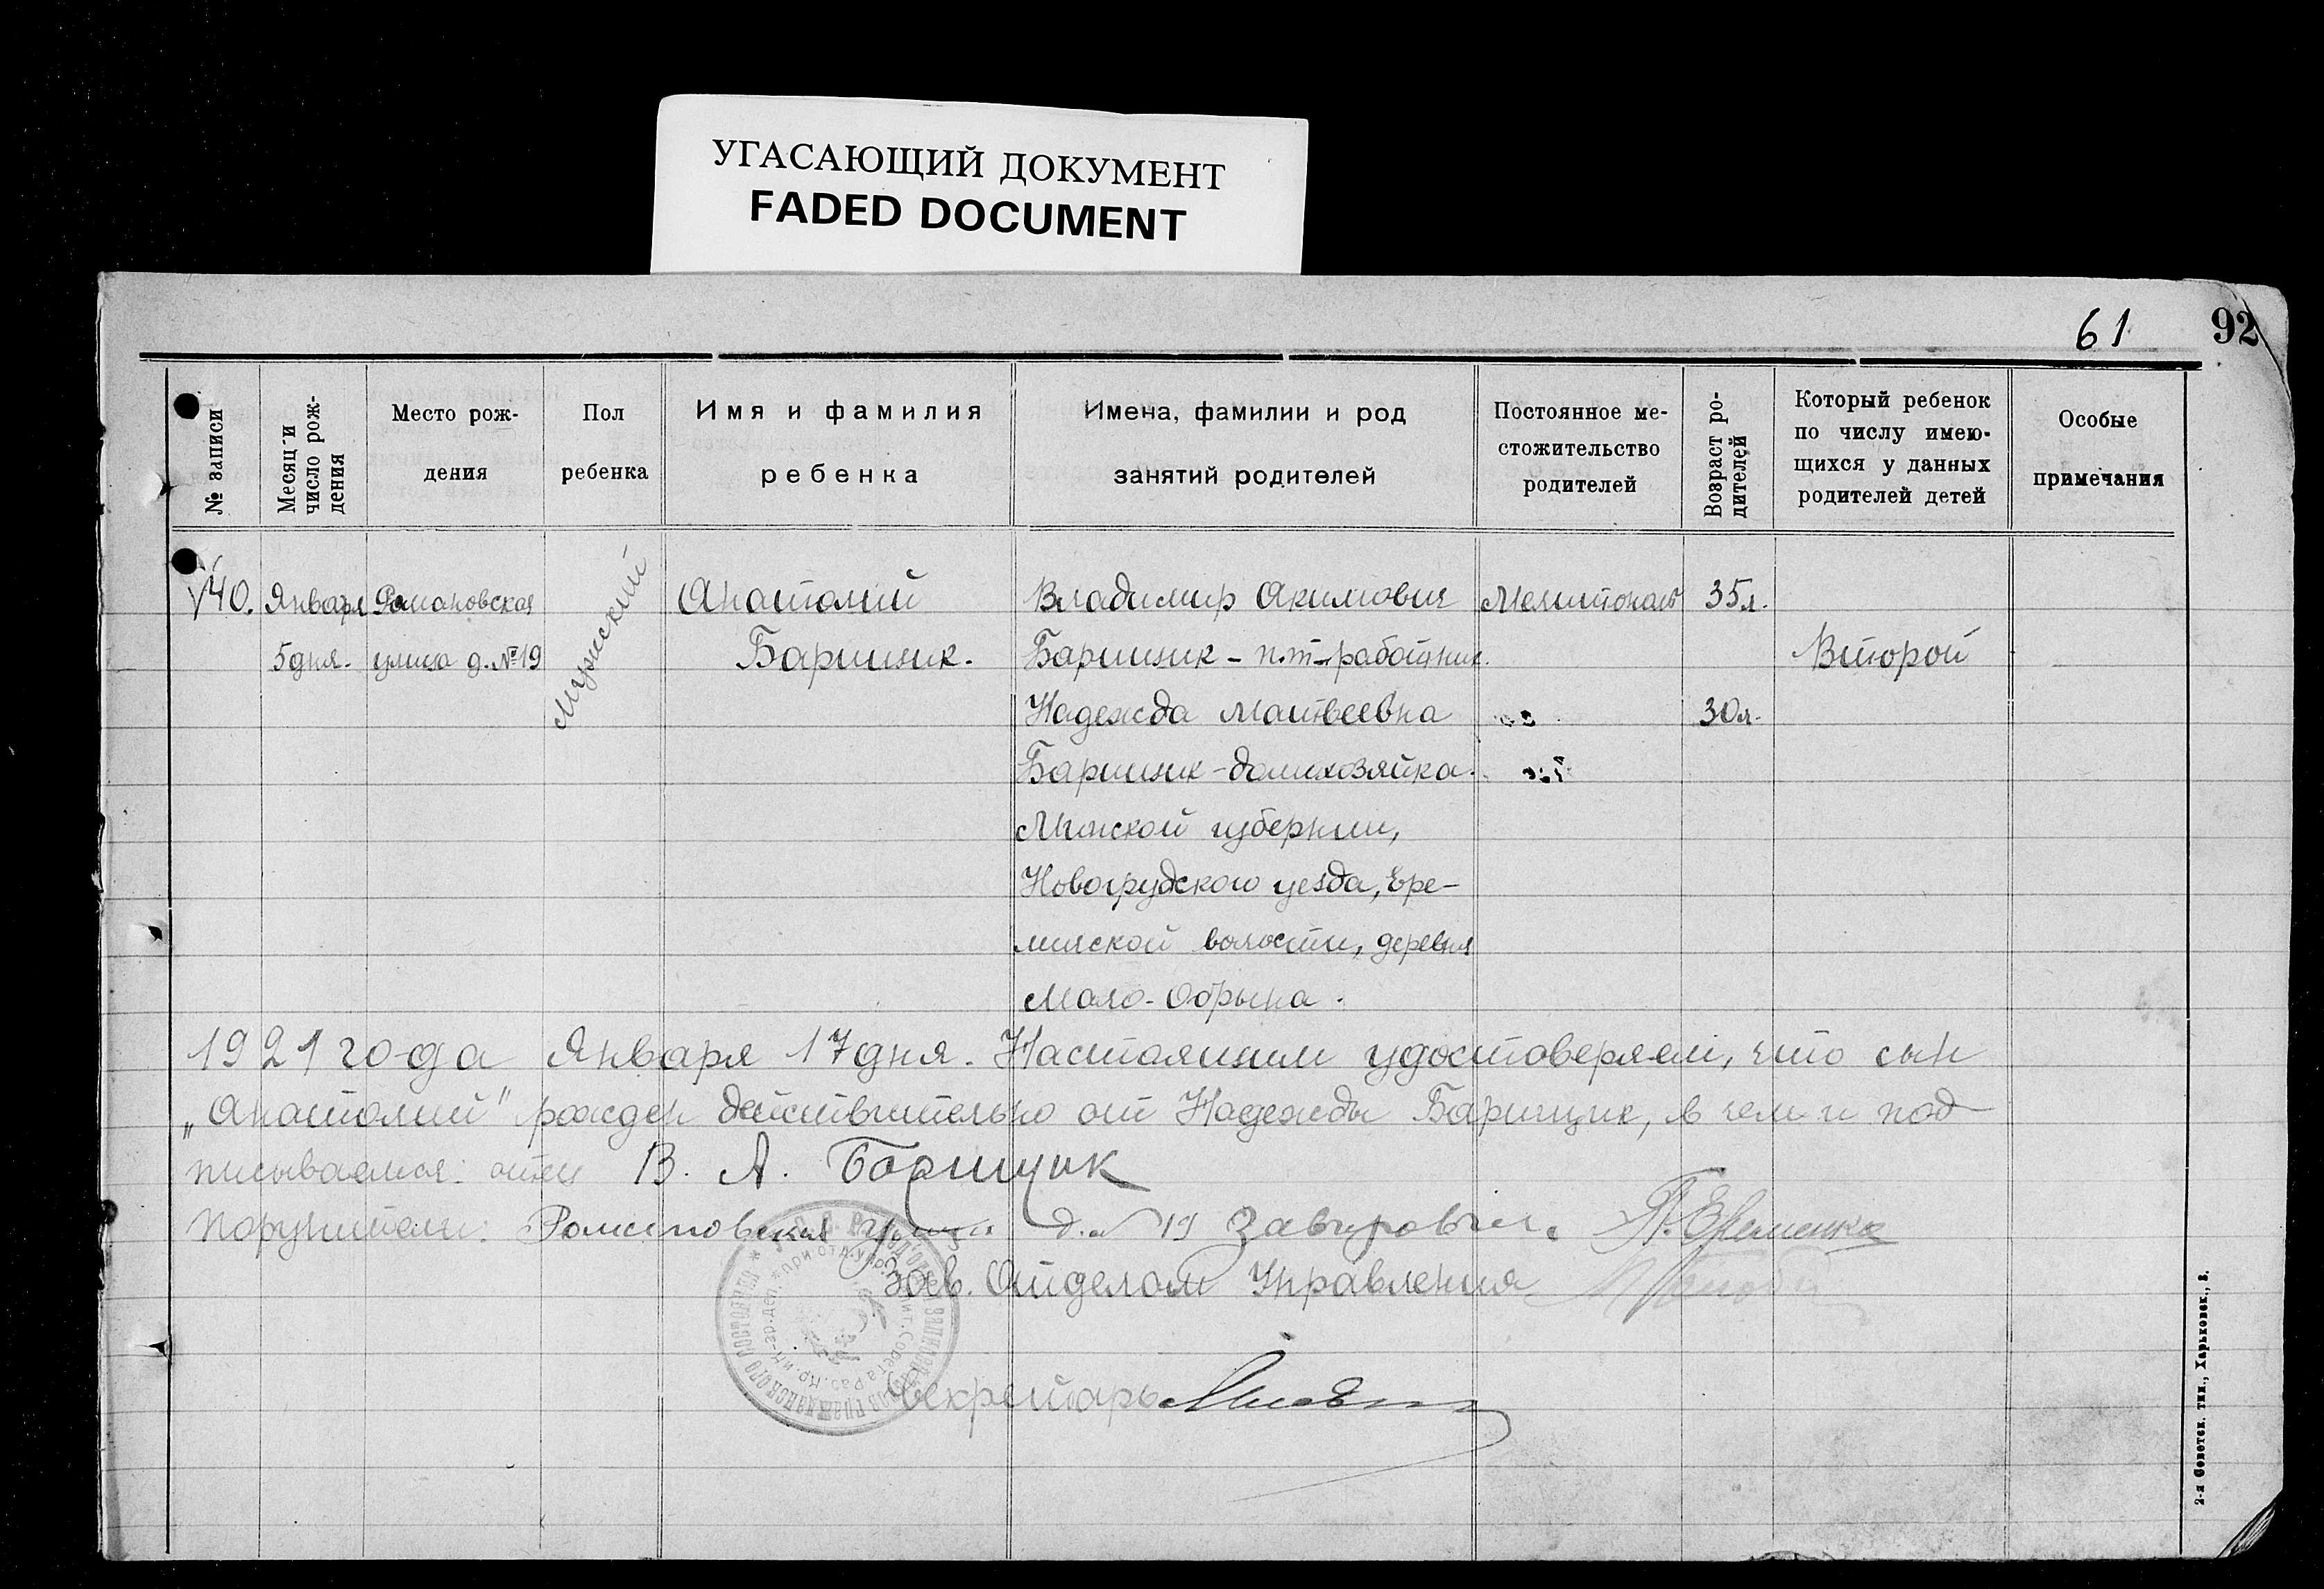 УГАСАЮЩИЙ ДОКУМЕНТ
FADED DOCUMENT
61 92
№ записи
Месяц и число рождения
Место рож-
дения
Пол
ребенка
Имя и фамилия
ребенка
Имена, фамилии и род
занятий родителей
Постоянное ме-
стожительство
родителей
Возраст ро-
дителей
Который ребенок
по числу имею-
щихся у данных
родителей детей
Особые
примечания
40. Января Романовская Мужской Анатолий Владимир Акимович Мелитополь 35л.
5 дня. улица д. №19 Барищик. Барищик - п.-т. работник. Второй
Надежда Матвеевна 30л.
Барищик - домохозяйка.
Минской губернии,
Новогрудского уезда, Ере-
мической волости, деревня
Мало-Обрына.
1921 года Января 17 дня. Настоящим удостоверяем, что сын
„Анатолий" рожден действительно от Надежды Барищик, в чем и под-
писываемся: отец В. А. Борищик
Поручители: Романовская улица д. № 19 П. Еременко
Зав. Отделом Управления
Секретарь
2-я Советск. тип., Харьковск., 8.